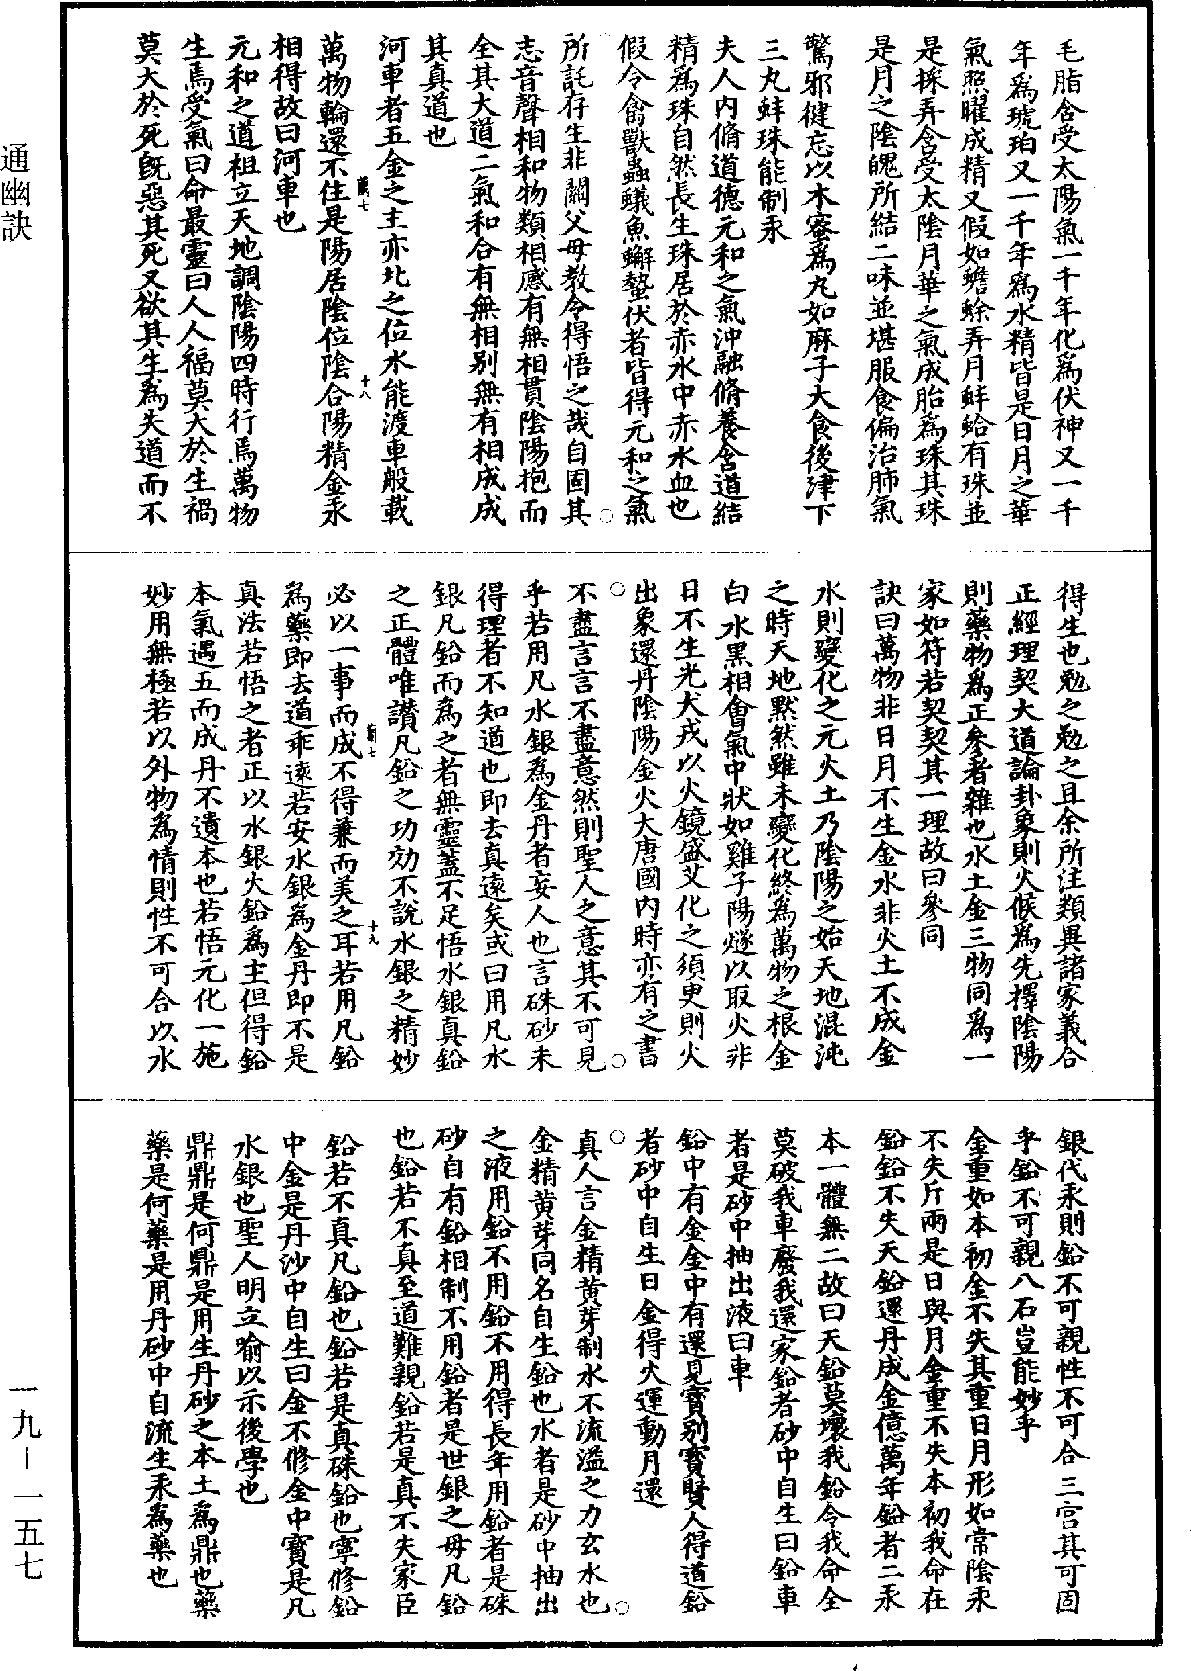 毛脂含受太陽氣一千年化爲伏神又一千
年爲琥珀又一千年爲水精皆是日月之華
氣照曜成精又假如蟾蜍弄月蚌蛤有珠並
是採弄含受太陰月華之氣成胎爲珠其珠
是月之陰魄所結二味並堪服食偏治肺氣
驚邪健忘以木蜜爲丸如麻子大食後津下
三丸蚌珠能制汞
夫人內脩道德元和之氣沖融脩養含道結
精爲珠自然長生珠居於赤水中赤水血也
假令禽獸蟲蟻魚蠏蟄伏者皆得元和之氣
所託存生非關父母教令得悟之哉自固其
志音聲相和物類相感有無相貫陰陽抱而
全其大道二氣和合有無相别無有相成成
其真道也
河車者五金之主亦北之位水能渡車般載
萬物輪還不住是陽居陰位陰合陽精金汞
相得故曰河車也
元和之道祖立天地調陰陽四時行焉萬物
生焉受氣曰命最靈曰人人福莫大於生禍
莫大於死既惡其死又欲其生爲失道而不
得生也勉之勉之且余所注類異諸家義合
正經理契大道論卦象則火候爲先擇陰陽
則藥物爲正參者雜也水土金三物同爲一
家如符若契契其一理故曰參同
訣曰萬物非日月不生金水非火土不成金
水則變化之元火土乃陰陽之始天地混沌
之時天地黙然雖未變化終爲萬物之根金
白水黑相會氣中狀如雞子陽燧以取火非
日不生光犬戎以火鏡盛艾化之須臾則火
出象還丹陰陽金火大唐國內時亦有之書
不盡言言不盡意然則聖人之意其不可見
乎若用凡水銀爲金丹者妄人也言硃砂未
得理者不知道也即去真遠矣或曰用凡水
銀凡鉛而爲之者無靈蓋不足悟水銀真鉛
之正體唯讃凡鉛之功効不說水銀之精妙
必以一事而成不得兼而美之耳若用凡鉛
為藥即去道乖遠若安水銀為金丹即不是
真法若悟之者正以水銀火鉛為主但得鉛
本氣遇五而成丹不遺本也若悟元化一施
妙用無極若以外物為情則性不可合以水
銀代汞則鉛不可親性不可合三宫其可固
乎鉛不可親八石豈能妙乎
金重如本初金不失其重日月形如常陰汞
不失斤兩是日與月金重不失本初我命在
鉛鉛不失天鉛還丹成金億萬年鉛者二汞
本一體無二故曰天鉛莫壞我鉛令我命全
莫破我車廢我還家鉛者砂中自生曰鉛車
者是砂中抽出液曰車
鉛中有金金中有還見寳别寳賢人得道鉛
者砂中自生曰金得火運動月還
真人言金精黄芽制水不流溢之力玄水也
金精黄芽同名自生鉛也水者是砂中抽出
之液用鉛不用鉛不用得長年用鉛者是硃
砂自有鉛相制不用鉛者是世銀之母凡鉛
也鉛若不真至道難親鉛若是真不失家臣
鉛若不真凡鉛也鉛若是真硃鉛也寧修鉛
中金是丹沙中自生曰金不修金中寳是凡
水銀也聖人明立喻以示後學也
鼎鼎是何鼎是用生丹砂之本土爲鼎也藥
藥是何藥是用丹砂中自流生汞爲藥也
通幽訣
一九－一五七